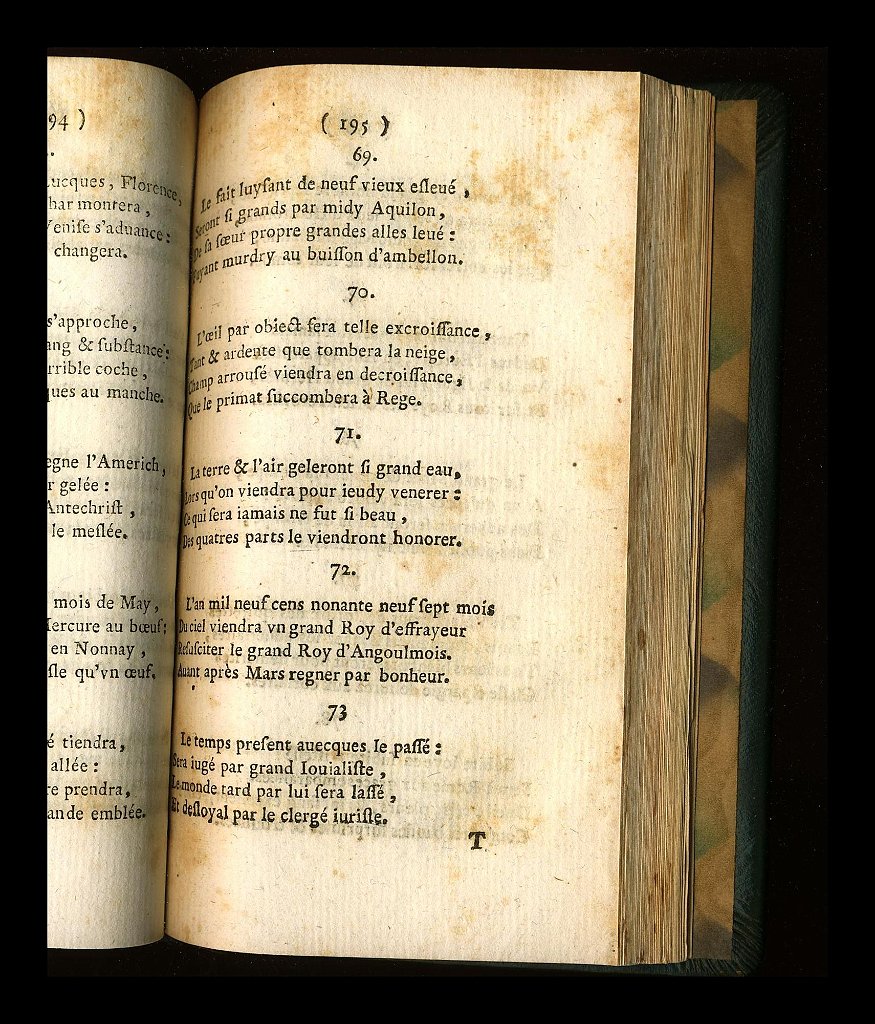 94 )
Lucques, Florence,
har montera,
Venise s'aduance:
changera.
s'approche,
ang & ſubſtance:
rrible coche,
ques au manche.
egne l'Americh,
r gelée:
Antechriſt,
le meſlée.
mois de May,
Mercure au bœuf:
en Nonnay,
ſle qu'vn œuf.
é tiendra,
allée:
re prendra,
ande emblée.
( 195 )
69.
Le fait luyſant de neuf vieux eſleué,
Seront ſi grands par midy Aquilon,
De ſa ſœur propre grandes alles leué:
Fuyant murdry au buiſſon d'ambellon.
70.
L'œil par obiect ſera telle excroiſſance,
Tant & ardente que tombera la neige,
Champ arrouſé viendra en decroiſſance,
Que le primat ſuccombera à Rege.
71.
La terre & l'air geleront ſi grand eau,
Lors qu'on viendra pour ieudy venerer:
Ce qui ſera iamais ne fut ſi beau,
Des quatres parts le viendront honorer.
72.
L'an mil neuf cens nonante neuf ſept mois
Du ciel viendra vn grand Roy d'effrayeur
Reſuſciter le grand Roy d'Angoulmois.
Auant après Mars regner par bonheur.
73
Le temps preſent auecques le paſſé:
Sera iugé par grand Iouialiſte,
Le monde tard par lui ſera laſſé,
Et deſloyal par le clergé iuriſte.
T